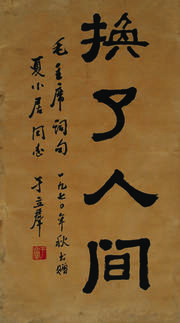 换了人间
毛主席词句 一九七〇年秋书赠
夏小居同志
于立群